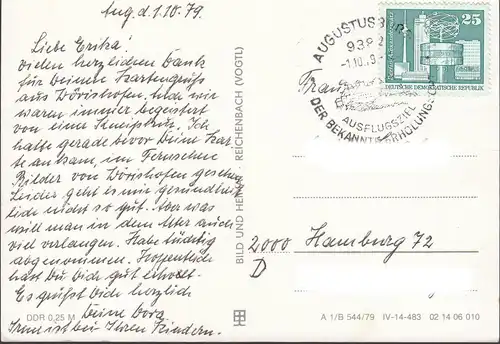 Aug.d. 1.10.79.
Liebe Erika!
vielen herzlichen Dank
für Deinen Kartengruß
aus Wörishofen. Auch wir
waren immer begeistert
von einer Kneippkur. Ich
hatte gerade bevor Deine Kar-
te ankam, im Fernsehen
Bilder von Wörishofen gesehen.
Leider geht es mir gesundheit-
lich nicht so gut. Aber was
will man in dem Alter auch
viel verlangen. Habe tüchtig
abgenommen. Hoffentlich
hast Du Dich gut erholt.
Es grüßt Dich herzlich
Deine Dora
Irene ist bei Ihren Kindern.
DDR 0,25 M
BILD UND HEIMAT REICHENBACH (VOGTL)
AUGUSTUSBURG
938
-1.10.
AUSFLUGSZIEL
DER BEKANNTE ERHOLUNGS-
25
DEUTSCHE DEMOKRATISCHE REPUBLIK
Frau
2000 Hamburg 72
D
A 1/B 544/79 IV-14-483 02 14 06 010